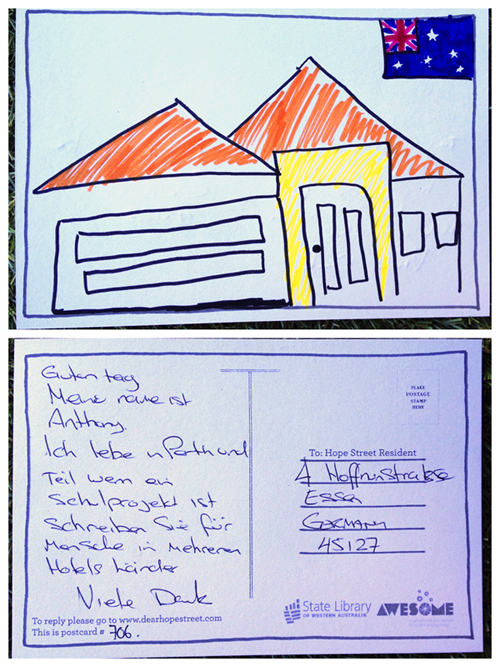 Guten tag
Meine name ist
Anthony.
Ich lebe in Perth und
Teil wem ein
Schulprojekt ist
Schreiben Sie für
Mensche in Mehreren
Hotels Länder
Viele Dank
To reply please go to www.dearhopestreet.com
This is postcard # 706.
PLACE
POSTAGE
STAMP
HERE
To: Hope Street Resident
4 Hoffnunstralsse
Essen
Germany
45127
State Library
OF WESTERN AUSTRALIA
AWESOME